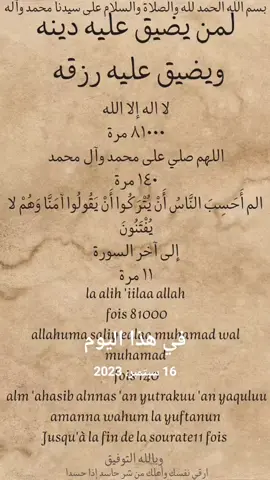 بسم الله الحمد لله والصلاة والسلام على سيدنا محمد وآله
لمن يضيق عليه دينه
ويضيق عليه رزقه
لا اله إلا الله
٨١٠٠٠ مرة
اللهم صلي على محمد وآل محمد
١٤٠ مرة
الم أَحَسِبَ النَّاسُ أَنْ يُتْرَكُوا أَنْ يَقُولُوا آمَنَّا وَهُمْ لا
يُفْتَنُونَ
إلى آخر السورة
١١ مرة
la alih 'iilaa allah
fois 81000
في هذا اليوم
allahuma saliy ealaa muhamad wal
muhamad
16 سبتمبر 2023
fois 140
alm 'ahasib alnnas 'an yutrakuu 'an yaquluu
amanna wahum la yuftanun
Jusqu'à la fin de la sourate11 fois
وبالله التوفيق
ارقي نفسك وأهلك من شر حاسد إذا حسدا